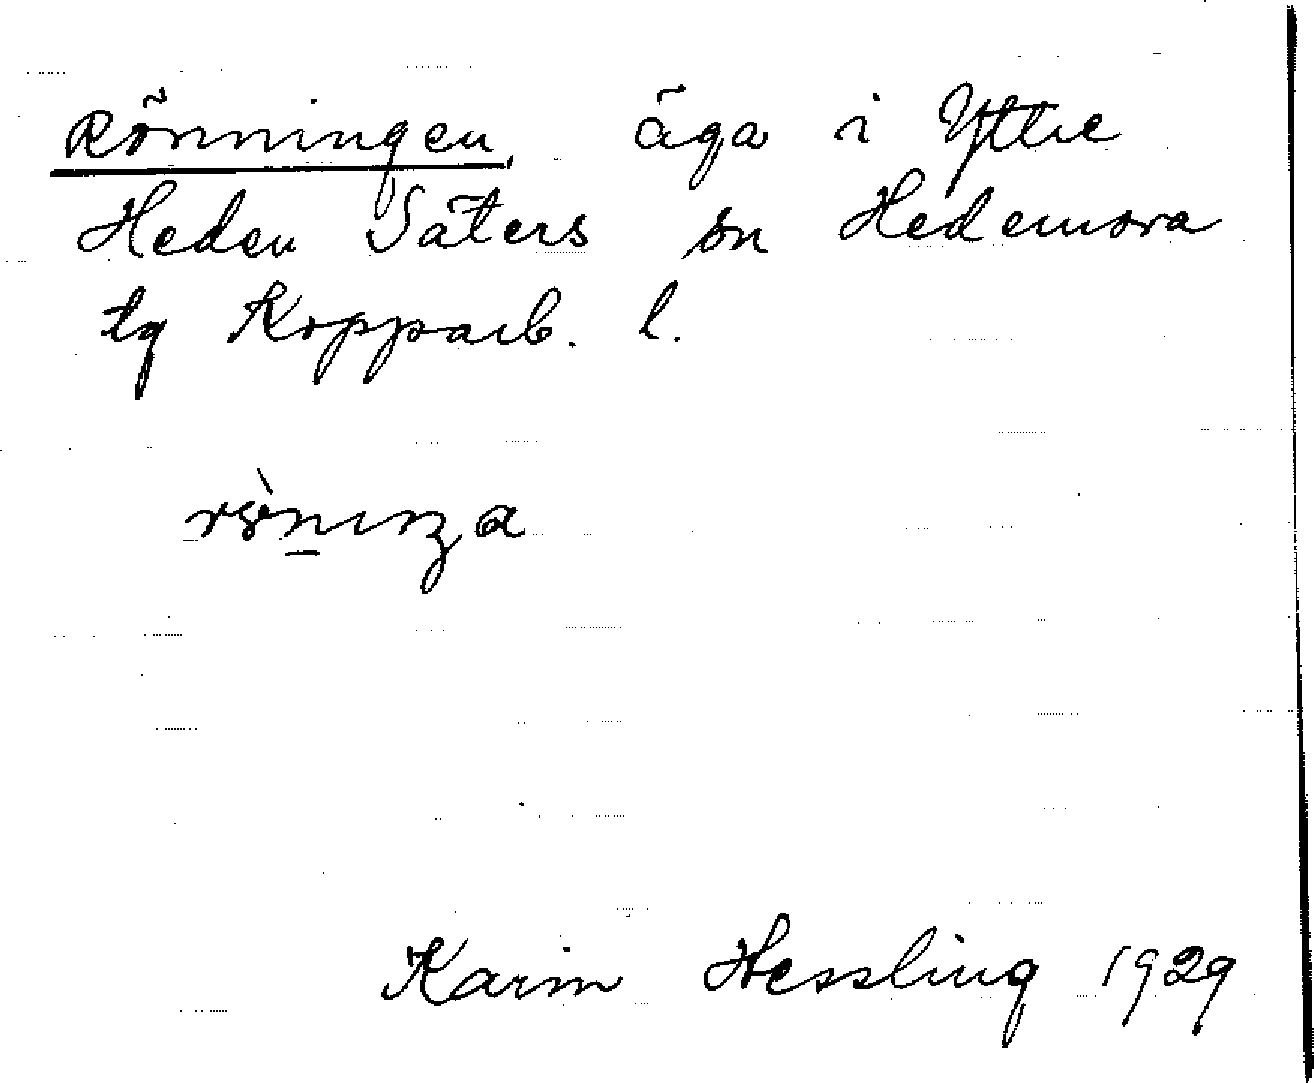 Rönningen, äga i Yttre
Heden Säters sn Hedemora
tg Kopparb. l.
Karin Hessling 1929